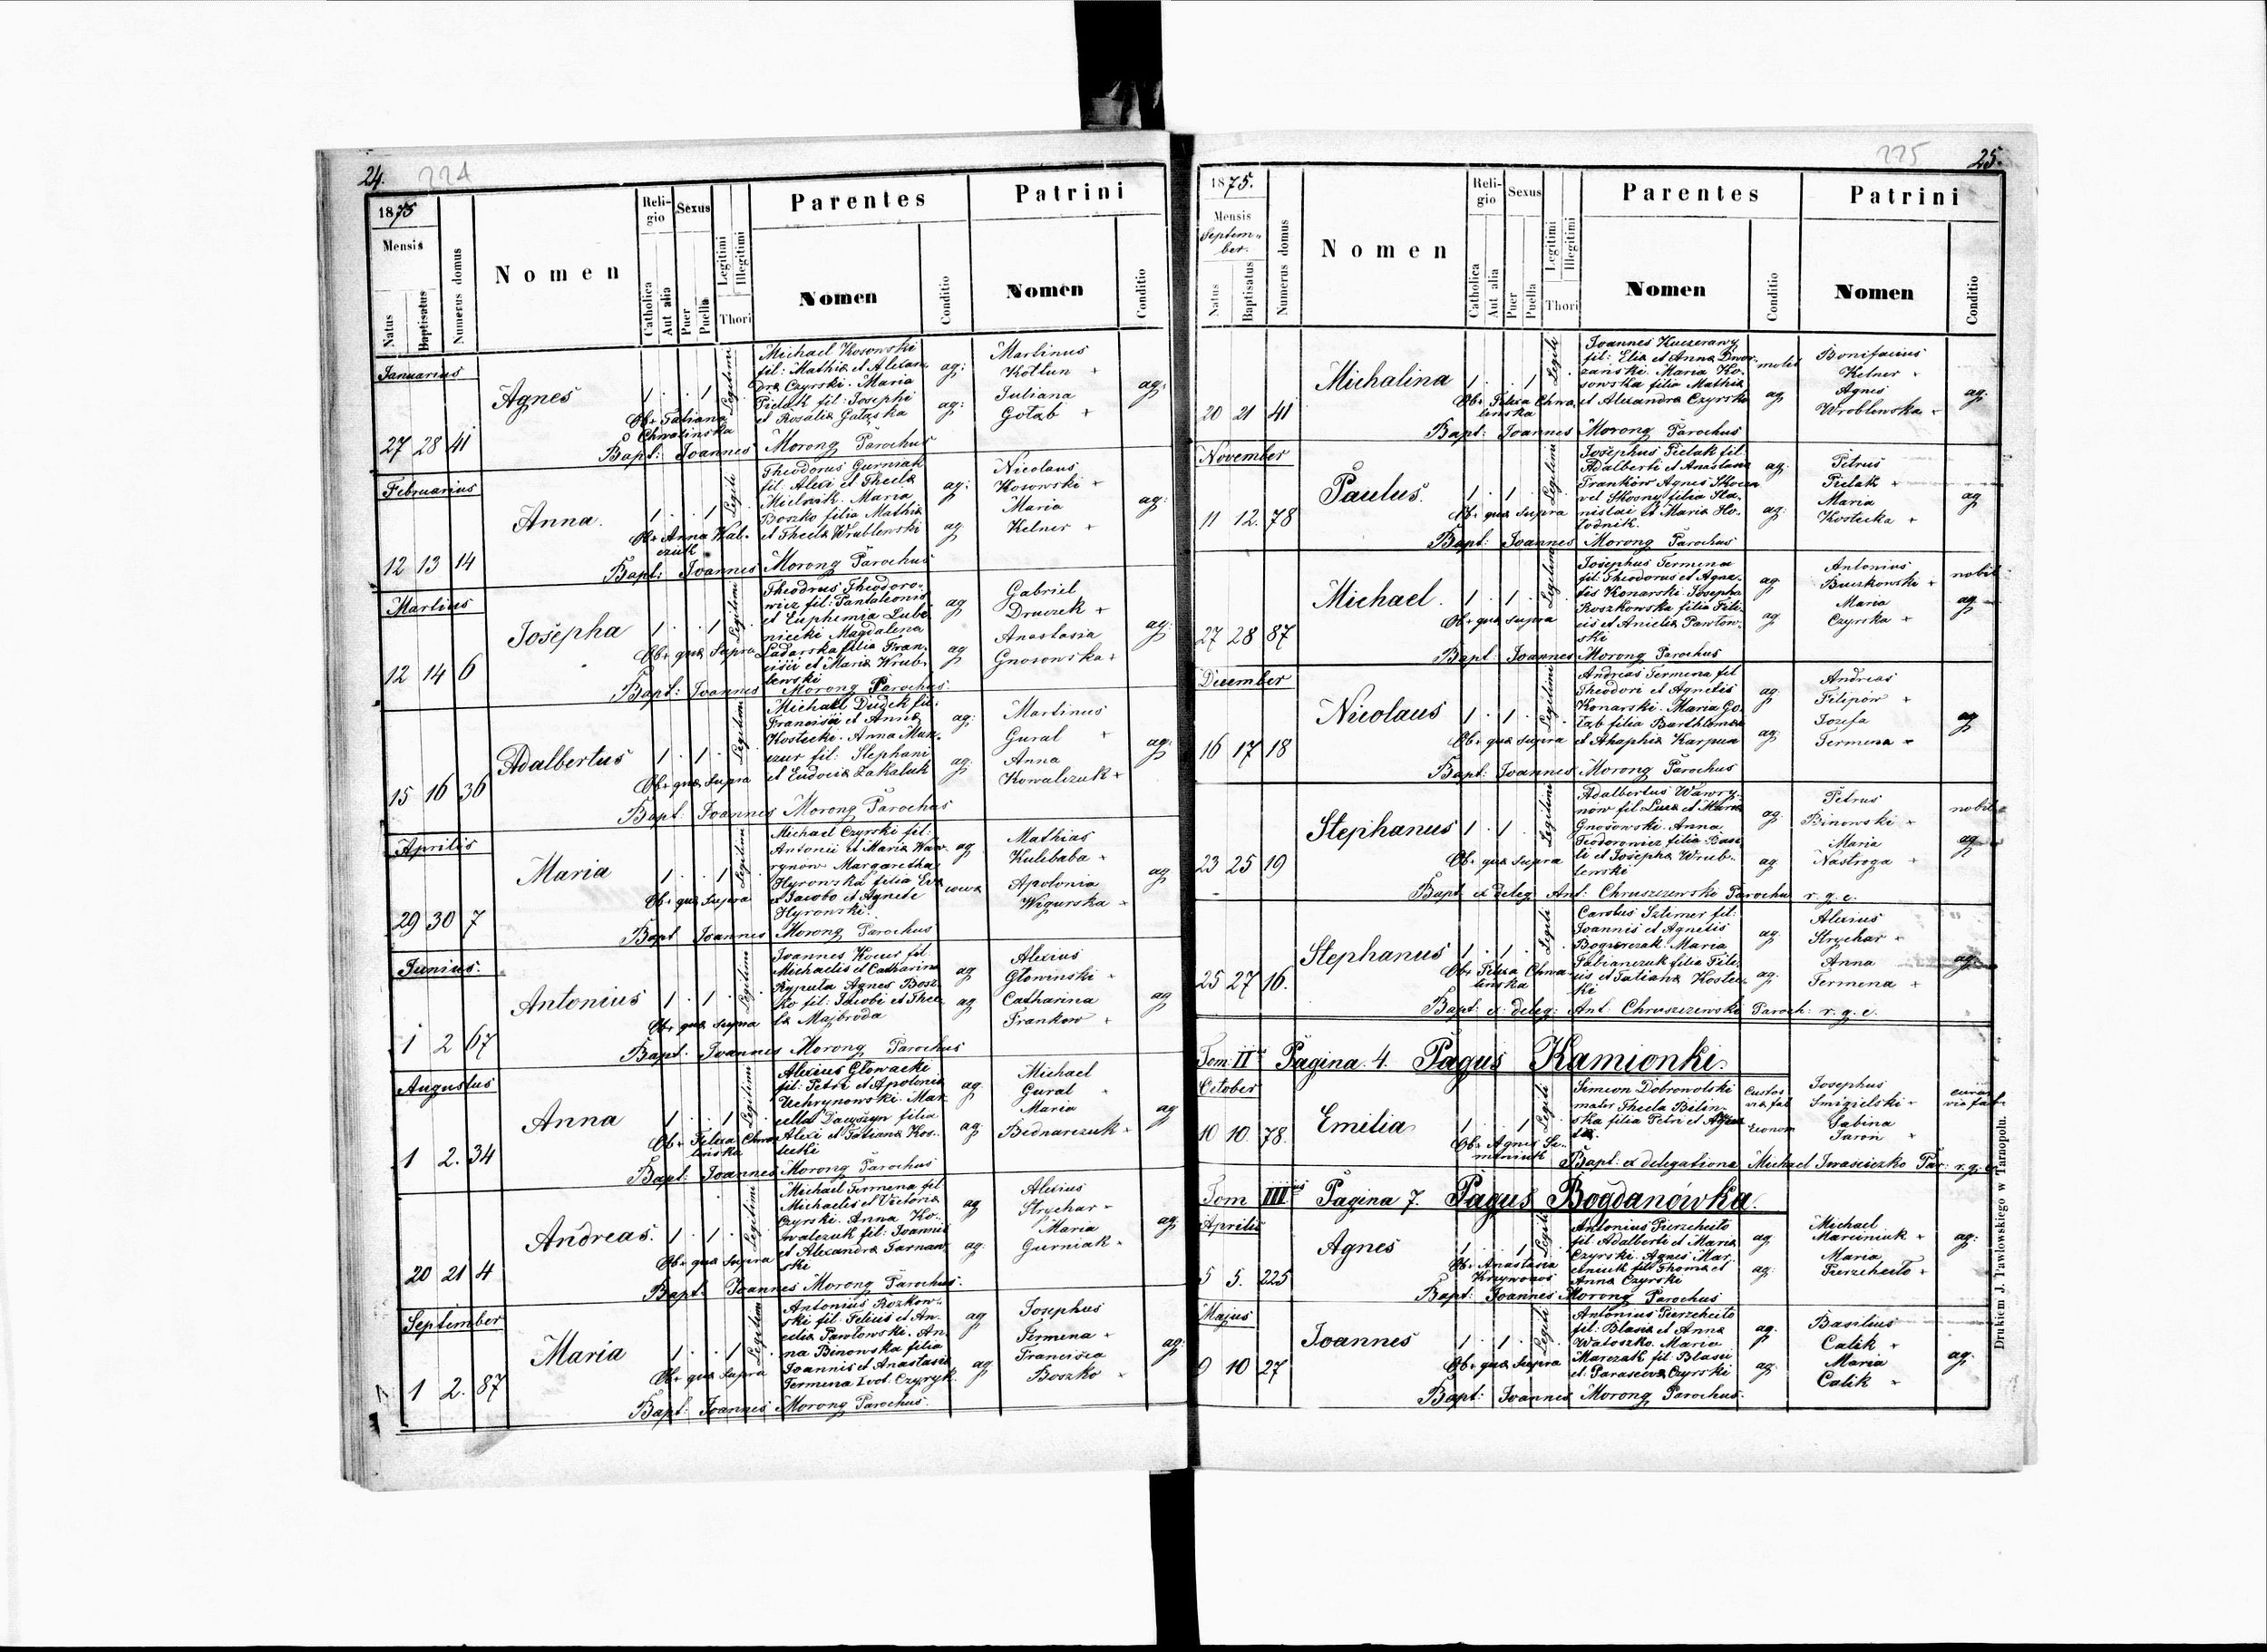 24. 224
1875
Mensis
Natus
Baptisatus
Numerus domus
Nomen
Religio
Catholica
Aut alia
Sexus
Puer
Puella
Legitimi
Illegitimi
Thori
Parentes
Nomen
Conditio
Patrini
Nomen
Conditio
Januarius
27 28 41
Agnes
1 . . 1 Legitimi
Obs. Tatiana
Chwalinska
Michael Kosowski
fil: Mathiæ et Alexan
dræ Czyrski. Maria
Pielak fil: Josephi
et Rosaliæ
ag:
ag:
Martinus
Kotlun +
Juliana
Gołąb +
ag:
Bapt: Joannes Morong Parochus
Februarius
12 13 14
Anna.
1 . . 1 Legiti
Obs. Anna Kal-
czuk
Theodorus Gurniak
fil: Alexi et Theclæ
Mielnik. Maria
Boszko filia Mathiæ
et Theclæ Wrublewski
ag:
ag
Nicolaus
Kosowski +
Maria
Kelner +
ag:
Bapt: Joannes Morong Parochus
Martius
12 14 6
Josepha
1 . . 1 Legitimi
Obs. quæ supra
Theodrus Theodoro-
wicz fil: Pantaleonis
et Euphemia Lube
niecki Magdalena
Ladarska filia Fran-
cisii et Mariæ Wrub-
lewski
ag
ag
Gabriel
Druczek +
Anastasia
Gnosowska +
ag:
Bapt: Joannes Morong Parochus
15 16 36
Adalbertus
1 . 1 . Legitimi
Obs. quæ supra
Michael Dudek fil:
Francisii et Annæ
Kostecki. Anna Mun-
czur fil: Stephani
et Eudociæ Zakaluk
ag:
ag:
Martinus
Gural +
Anna
Kowalczuk +
ag:
Bapt: Joannes Morong Parochus
Aprilis
29 30 7
Maria
1 . . 1 Legitimi
Obs. quæ supra
Michael Czyrski fil:
Antonii et Mariæ Waw-
rynow Margaretha
Hyronska filia
et Jacobo et Agnete
Hyronski.
ag
Mathias
Kulebaba +
Apolonia
Wigurska +
ag
Bapt Joannes Morong Parochus
Junius.
1 2 67
Antonius
1 . 1 . Legitimi
Obs. quæ supra
Joannes Kocus fil.
Michaelis et Catharina
Rypula Agnes Bosz-
ko fil: Jacobi et Thec-
læ Majbroda
ag
ag
Alexius
Głowinski +
Catharina
Frankow +
ag
Bapt: Joannes Morong Parochus
Augustus
1 2. 34
Anna
1 . . 1 Legitimi
Obs. Felixa Chwa-
linska
Alexius Głowacki
fil: Petri et Apolonia
Uchrynowski. Mar-
cella Daszyn filia
Alexi et Tatianæ Kos-
tecki
ag
ag:
Michael
Gural
Maria
Bednarczuk +
ag
Bapt: Joannes Morong Parochus
20 21 4
Andreas.
1 . 1 . Legitimi
Obs. quæ supra
Michael Fermena fil
Michaelis et Victoriæ
Czyrski. Anna Ko-
walczuk fil: Joannis
et Alexandræ Tarnaw
ski
ag
ag:
Alexius
Strychar +
Maria
Gurniak +
ag:
Bapt: Joannes Morong Parochus.
September
1 2. 87
Maria
1 . . 1 Legitimi
Obs. quæ supra
Antonius Rozkow-
ski fil: Felicis et An-
celiæ Pawłowski. An-
na Binowska filia
Joannis et Anastasiæ
Fermena 1 vot. Czyryk
ag
ag
Josephus
Fermena +
Francisca
Boszko +
ag:
Bapt: Joannes Morong Parochus.
225 25.
1875.
Mensis
Septem-
ber.
Natus
Baptisatus
Numerus domus
Nomen
Religio
Catholica
Aut alia
Sexus
Puer
Puella
Legitimi
Illegitimi
Thori
Parentes
Nomen
Conditio
Patrini
Nomen
Conditio
20 21 41
Michalina
1 . . 1 Legiti
Obs. Felixa Chwa-
linska
Joannes Kuczerawy
fil: Eliæ et Annæ Dwor-
zanski. Maria Ko-
sowska filia Mathiæ
et Alexandra Czyrska
molit
ag
Bonifacius
Kelner +
Agnes
Wroblewska +
ag:
Bapt: Joannes Morong Parochus
November
11 12. 78
Paulus.
1 . 1 . Legitimi
Obs. quæ supra
Josephus Pielak fil.
Adalberti et Anastasiæ
Franków Agnes
vel Skosny filia Sta-
nislai et Mariæ Ho-
lodnik.
ag:
ag:
Petrus
Pielak +
Maria
Kostecka +
ag
Bapt: Joannes Morong Parochus
27 28 87
Michael.
1 . 1 . Legitimi
Obs. quæ supra
Josephus Fermena
fil: Theodorus et Agna-
tis Konarski. Josepha
Roszkowska filia Feli-
cis et Anielæ Pawłow-
ski
ag
ag
Antonius
Buczkowski +
Maria
Czyrska +
nobil
ag
Bapt: Joannes Morong Parochus
December
16 17 18
Nicolaus
1 . 1 . Legitimi
Obs. quæ supra
Andreas Fermena fil
Theodori et Agnetis
Konarski. Maria Go-
łąb filia Barthlomæi
et Ahaphiæ Karpua
ag:
ag:
Andreas
Filipów +
Jozefa
Fermena +
ag
Bapt: Joannes Morong Parochus
23 25 19
Stephanus
1 . 1 . Legitimi
Obs. quæ supra
Adalbertus Wawry-
now fil. Lucæ et Mariæ
Gnosowski. Anna
Fiodorowicz filia Basi-
li et Josepha Wrub-
lewski
ag.
ag
Petrus
Binowski +
Maria
Nastroga +
nobil
ag
Bapt ex deleg Ant: Chruszczewski Parochu r. g. c.
25 27 16.
Stephanus
1 . 1 . Legiti
Obs. Felixa Chwa-
linska
Carolus Sztimer fil:
Joannis et Agnetis
Maria
Fabianczuk filia Feli-
cis et Tatianæ Kostec-
ki
ag.
ag.
Alexius
Strychar +
Anna
Fermena +
ag.
Bapt: ex deleg: Ant: Chruszczewski Paroch: r. g. c.
Tom: II Pagina 4. Pagus Kamionki.
October
10 10. 78.
Emilia
1 . . 1 Legiti
Obs. Agnes
Simeon Dobrowolski
mater Thecla Bilin-
ska filia Petri et
Custos
Josephus
Smigielski +
Sabina
Jaron +
Bapt: ex delegationa Michael Iwasieczko Par: r. g. c.
Tom III Pagina 7. Pagus Bogdanówka.
Aprilis
5 5. 225
Agnes
1 . . 1 Legiti
Obs. Anastasia
Krzywonos
Antonius Pierzcheito
fil. Adalberti et Mariæ
Czyrski. Agnes Mar-
cniuk fil: Thomæ et
Anna Czyrski
ag
ag:
Michael
Marciniuk +
Maria
Pierzcheito +
ag:
Bapt: Joannes Morong Parochus
Majus
9 10 27
Joannes
1 . 1 . Legiti
Obs. quæ supra
Antonius Pierzcheito
fil: Blasiæ et Annæ
Watoszko. Maria
Marczak fil. Blasii
et: Parascevæ Czyrski
ag.
ag:
Basilius
Calik +
Maria
Calik +
ag:
Bapt: Joannes Morong Parochus.
Drukiem J. Pawłowskiego w Tarnopolu.